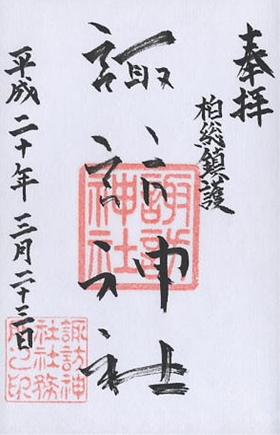 奉拝
柏総鎮護
諏訪神社
諏訪神社
平成二十年三月二十三日
諏訪神
社社務
所之印